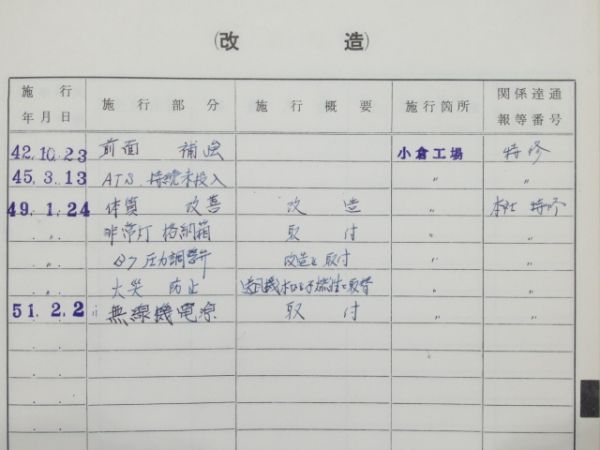 (改 造)
施行 年月日 施行部分 施行概要 施行箇所 関係達通報等番号
42.10.23 前面 補強 小倉工場 特修
45.3.13 ATS 持続未投入 〃 〃
49.1.24 体質 改善 改 造 〃 本社 特修
〃 非常灯 格納箱 取 付 〃 〃
〃 圧力調整弁 改造と取付 〃 〃
〃 火災 防止 〃 〃
51.2.2 無線機電源 取 付 〃 〃